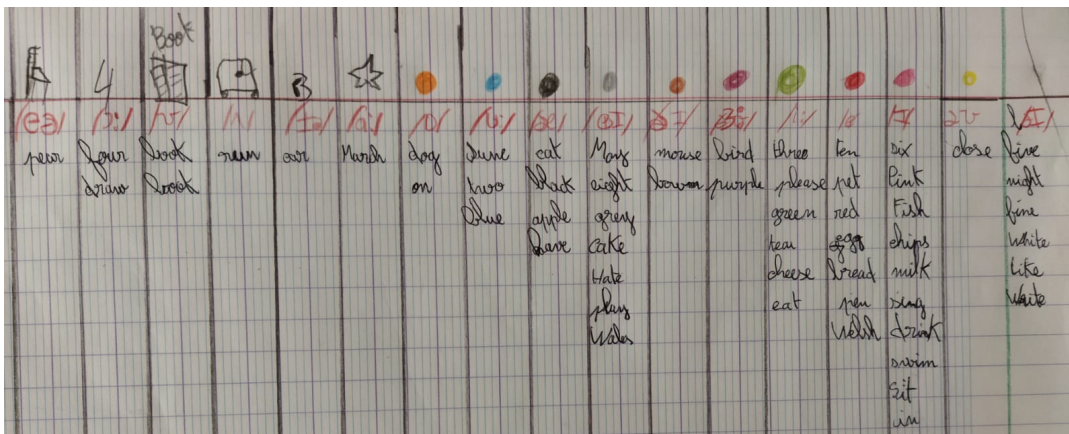 Book
4 3
/eə/ /ɔ:/ /ʊ/ /ʌ/ /ɑ:/ /ɒ/ /u:/ /æ/ /eI/ /i:/ /e/ /I/ əʊ /aI/
pear four look run ear March dog June cat May mouse bird three ten six close five
draw book on two black eight brown purple please pet pink night
blue apple grey green red fish fine
have cake tea egg chips white
Hate cheese bread milk like
play eat pen sing write
Wales Welsh drink
swim
sit
in